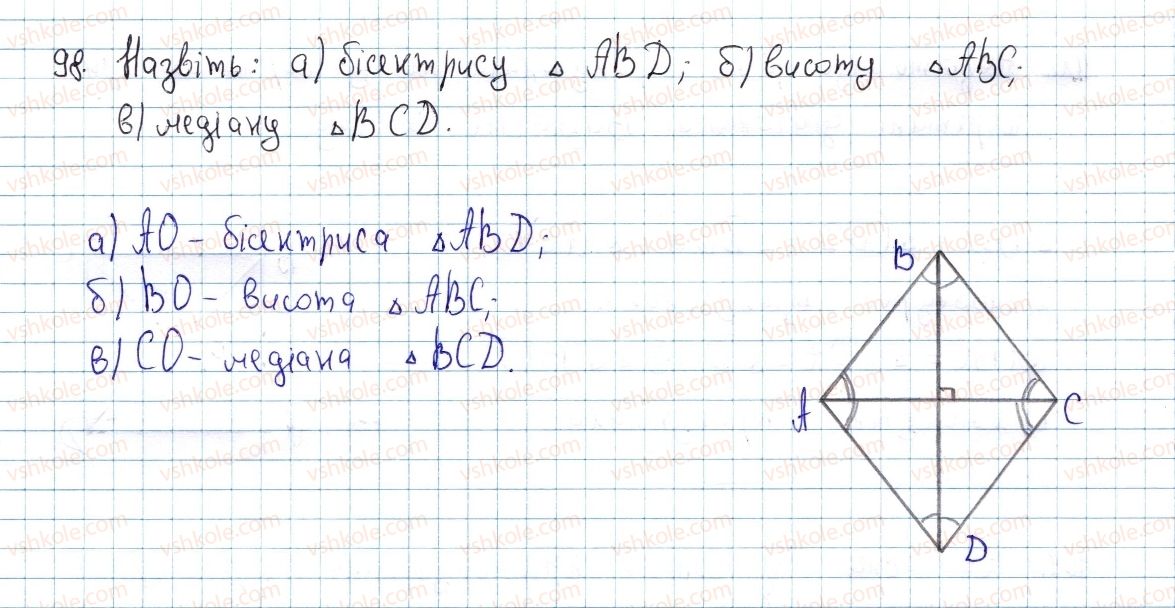 98. Назвіть: а) бісектрису △ ABD; б) висоту △ABC;
в) медіану △BCD.
а) AO - бісектриса △ABD;
б) BO - висота △ABC;
в) CO - медіана △BCD.
B
A
C
D
vshkole.com